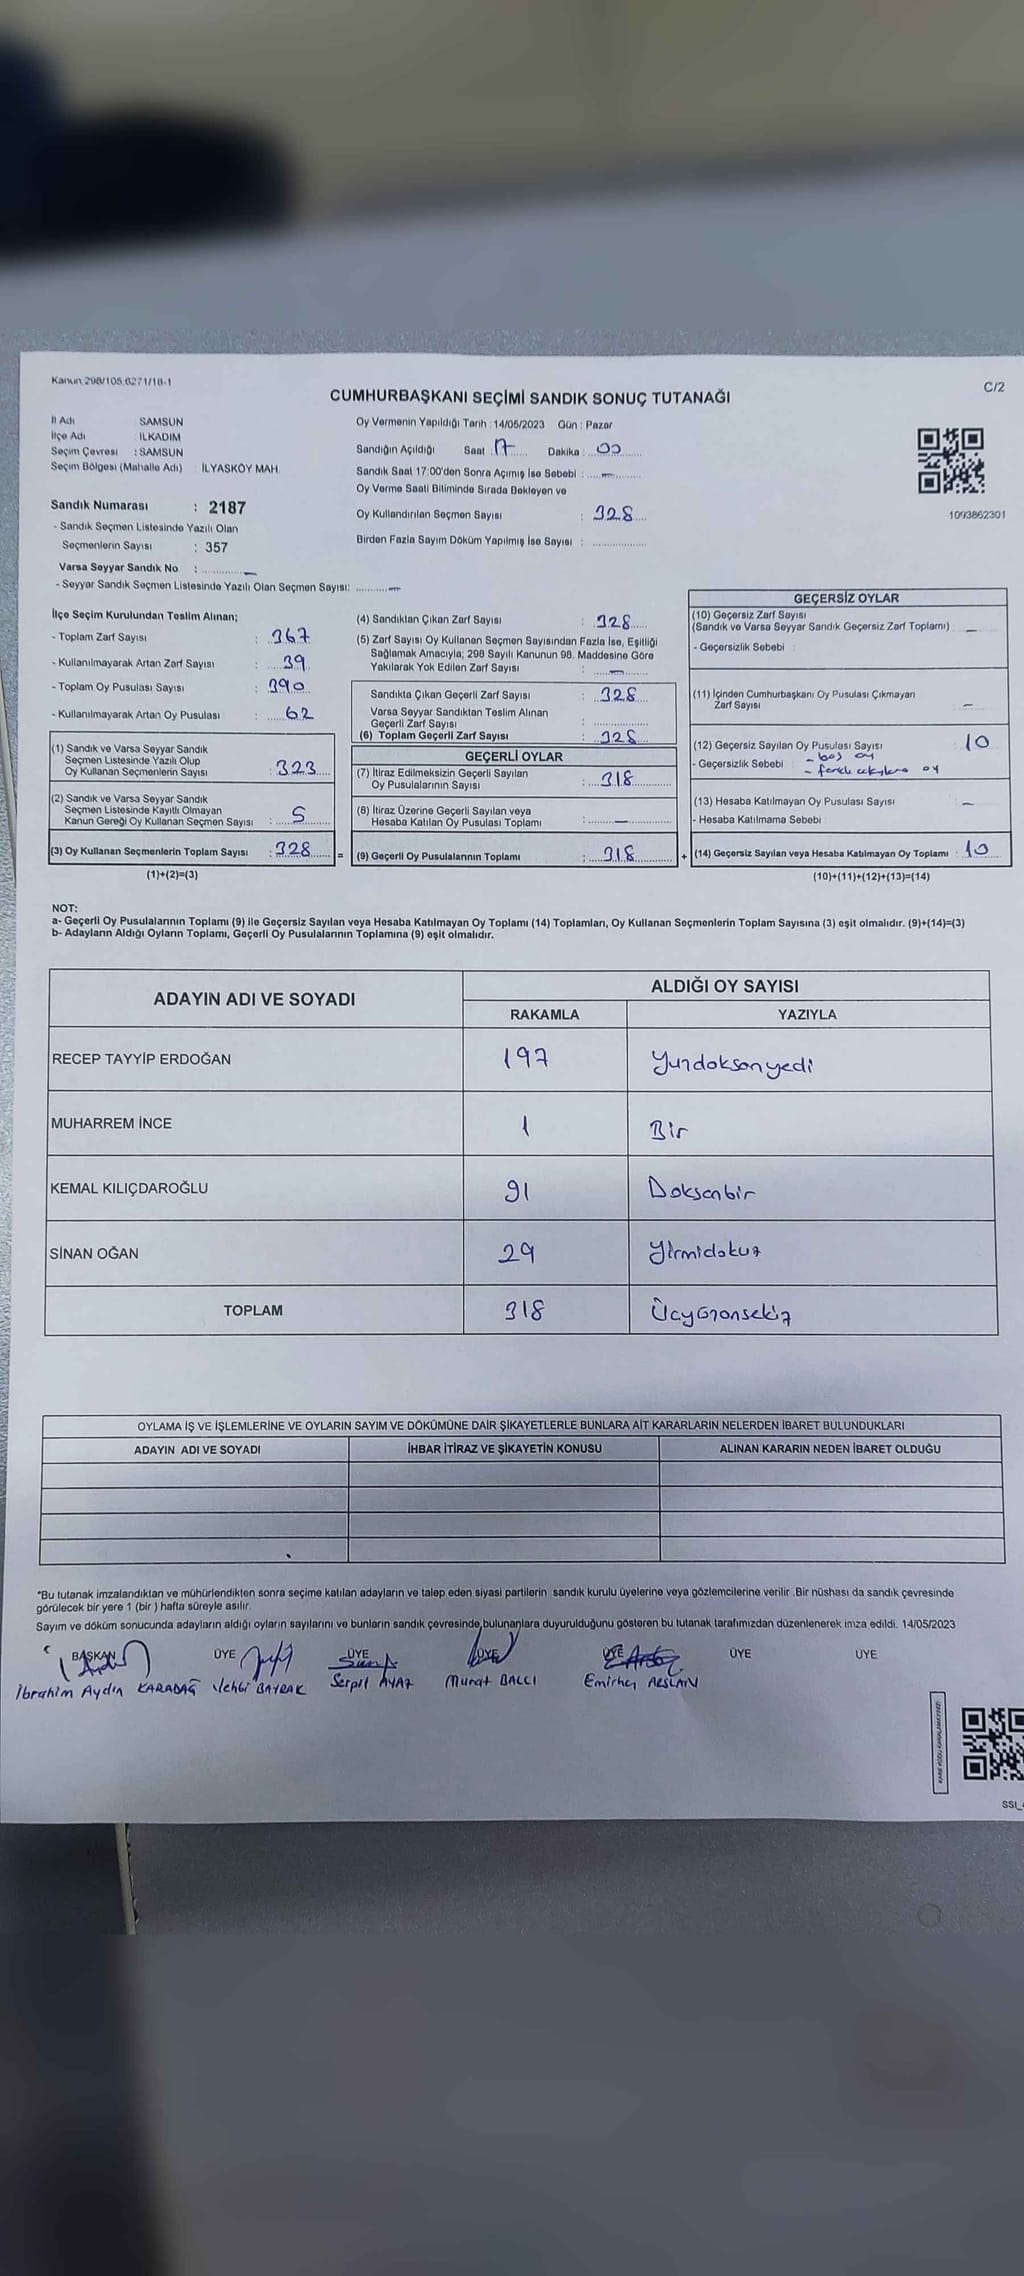 Kanun.298/105,6271/18-1
C/2
CUMHURBAŞKANI SEÇİMİ SANDIK SONUÇ TUTANAĞI
İl Adı : SAMSUN
İlçe Adı : İLKADIM
Seçim Çevresi : SAMSUN
Seçim Bölgesi (Mahalle Adı) : İLYASKÖY MAH.
Sandık Numarası : 2187
- Sandık Seçmen Listesinde Yazılı Olan
Seçmenlerin Sayısı : 357
Varsa Seyyar Sandık No : —
- Seyyar Sandık Seçmen Listesinde Yazılı Olan Seçmen Sayısı: —
Oy Vermenin Yapıldığı Tarih : 14/05/2023 Gün : Pazar
Sandığın Açıldığı Saat : 17 Dakika : 00
Sandık Saat 17:00'den Sonra Açılmış İse Sebebi : —
Oy Verme Saati Bitiminde Sırada Bekleyen ve
Oy Kullandırılan Seçmen Sayısı : 328
Birden Fazla Sayım Döküm Yapılmış İse Sayısı :
1093862301
İlçe Seçim Kurulundan Teslim Alınan;
- Toplam Zarf Sayısı : 367
- Kullanılmayarak Artan Zarf Sayısı : 39
- Toplam Oy Pusulası Sayısı : 390
- Kullanılmayarak Artan Oy Pusulası : 62
(1) Sandık ve Varsa Seyyar Sandık
Seçmen Listesinde Yazılı Olup
Oy Kullanan Seçmenlerin Sayısı : 323
(2) Sandık ve Varsa Seyyar Sandık
Seçmen Listesinde Kayıtlı Olmayan
Kanun Gereği Oy Kullanan Seçmen Sayısı : 5
(3) Oy Kullanan Seçmenlerin Toplam Sayısı : 328
(1)+(2)=(3)
(4) Sandıktan Çıkan Zarf Sayısı : 328
(5) Zarf Sayısı Oy Kullanan Seçmen Sayısından Fazla İse, Eşitliği
Sağlamak Amacıyla; 298 Sayılı Kanunun 98. Maddesine Göre
Yakılarak Yok Edilen Zarf Sayısı : —
Sandıkta Çıkan Geçerli Zarf Sayısı : 328
Varsa Seyyar Sandıktan Teslim Alınan
Geçerli Zarf Sayısı :
(6) Toplam Geçerli Zarf Sayısı : 328
GEÇERLİ OYLAR
(7) İtiraz Edilmeksizin Geçerli Sayılan
Oy Pusulalarının Sayısı : 318
(8) İtiraz Üzerine Geçerli Sayılan veya
Hesaba Katılan Oy Pusulası Toplamı : —
= (9) Geçerli Oy Pusulalarının Toplamı : 318
GEÇERSİZ OYLAR
(10) Geçersiz Zarf Sayısı
(Sandık ve Varsa Seyyar Sandık Geçersiz Zarf Toplamı) : —
- Geçersizlik Sebebi :
(11) İçinden Cumhurbaşkanı Oy Pusulası Çıkmayan
Zarf Sayısı : —
(12) Geçersiz Sayılan Oy Pusulası Sayısı : 10
- Geçersizlik Sebebi : - boş oy
- oy
(13) Hesaba Katılmayan Oy Pusulası Sayısı : —
- Hesaba Katılmama Sebebi :
+ (14) Geçersiz Sayılan veya Hesaba Katılmayan Oy Toplamı : 10
(10)+(11)+(12)+(13)=(14)
NOT:
a- Geçerli Oy Pusulalarının Toplamı (9) ile Geçersiz Sayılan veya Hesaba Katılmayan Oy Toplamı (14) Toplamları, Oy Kullanan Seçmenlerin Toplam Sayısına (3) eşit olmalıdır. (9)+(14)=(3)
b- Adayların Aldığı Oyların Toplamı, Geçerli Oy Pusulalarının Toplamına (9) eşit olmalıdır.
ADAYIN ADI VE SOYADI
ALDIĞI OY SAYISI
RAKAMLA YAZIYLA
RECEP TAYYİP ERDOĞAN 197 Yüzdoksanyedi
MUHARREM İNCE 1 Bir
KEMAL KILIÇDAROĞLU 91 Doksanbir
SİNAN OĞAN 29 Yirmidokuz
TOPLAM 318 Üçyüzonsekiz
OYLAMA İŞ VE İŞLEMLERİNE VE OYLARIN SAYIM VE DÖKÜMÜNE DAİR ŞİKAYETLERLE BUNLARA AİT KARARLARIN NELERDEN İBARET BULUNDUKLARI
ADAYIN ADI VE SOYADI İHBAR İTİRAZ VE ŞİKAYETİN KONUSU ALINAN KARARIN NEDEN İBARET OLDUĞU
*Bu tutanak imzalandıktan ve mühürlendikten sonra seçime katılan adayların ve talep eden siyasi partilerin sandık kurulu üyelerine veya gözlemcilerine verilir. Bir nüshası da sandık çevresinde
görülecek bir yere 1 (bir) hafta süreyle asılır.
Sayım ve döküm sonucunda adayların aldığı oyların sayılarını ve bunların sandık çevresinde bulunanlara duyurulduğunu gösteren bu tutanak tarafımızdan düzenlenerek imza edildi. 14/05/2023
BAŞKAN ÜYE ÜYE ÜYE ÜYE ÜYE ÜYE
İbrahim Aydın KARADAĞ Vehbi BAYRAK Serpil AYAZ Murat BALCI Emirhan ARSLAN
SSI_